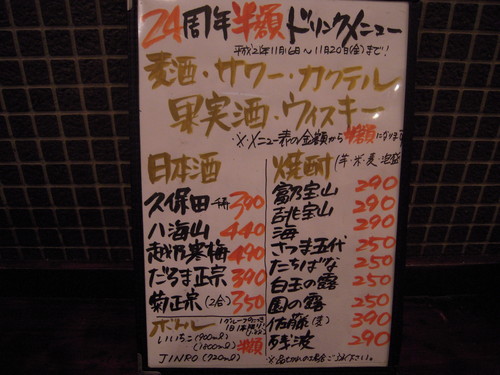 24周年半額ドリンクメニュー
平成21年11月16日〜11月20日(金)まで!
麦酒・サワー・カクテル
果実酒・ウィスキー
※・メニュー表の金額から半額になります
日本酒
久保田 千寿 390
八海山 440
越乃寒梅 490
だるま正宗 390
菊正宗(2合) 350
ボトル
いいちこ(900ml)
(1800ml) 半額
JINRO(720ml)
焼酎(芋・米・麦・泡盛
富乃宝山 290
吉兆宝山 290
海 290
さつま五代 250
たちばな 250
白玉の露 250
園の露 250
佐藤(麦) 390
残波 290
※品切れの場合ご了承下さい。